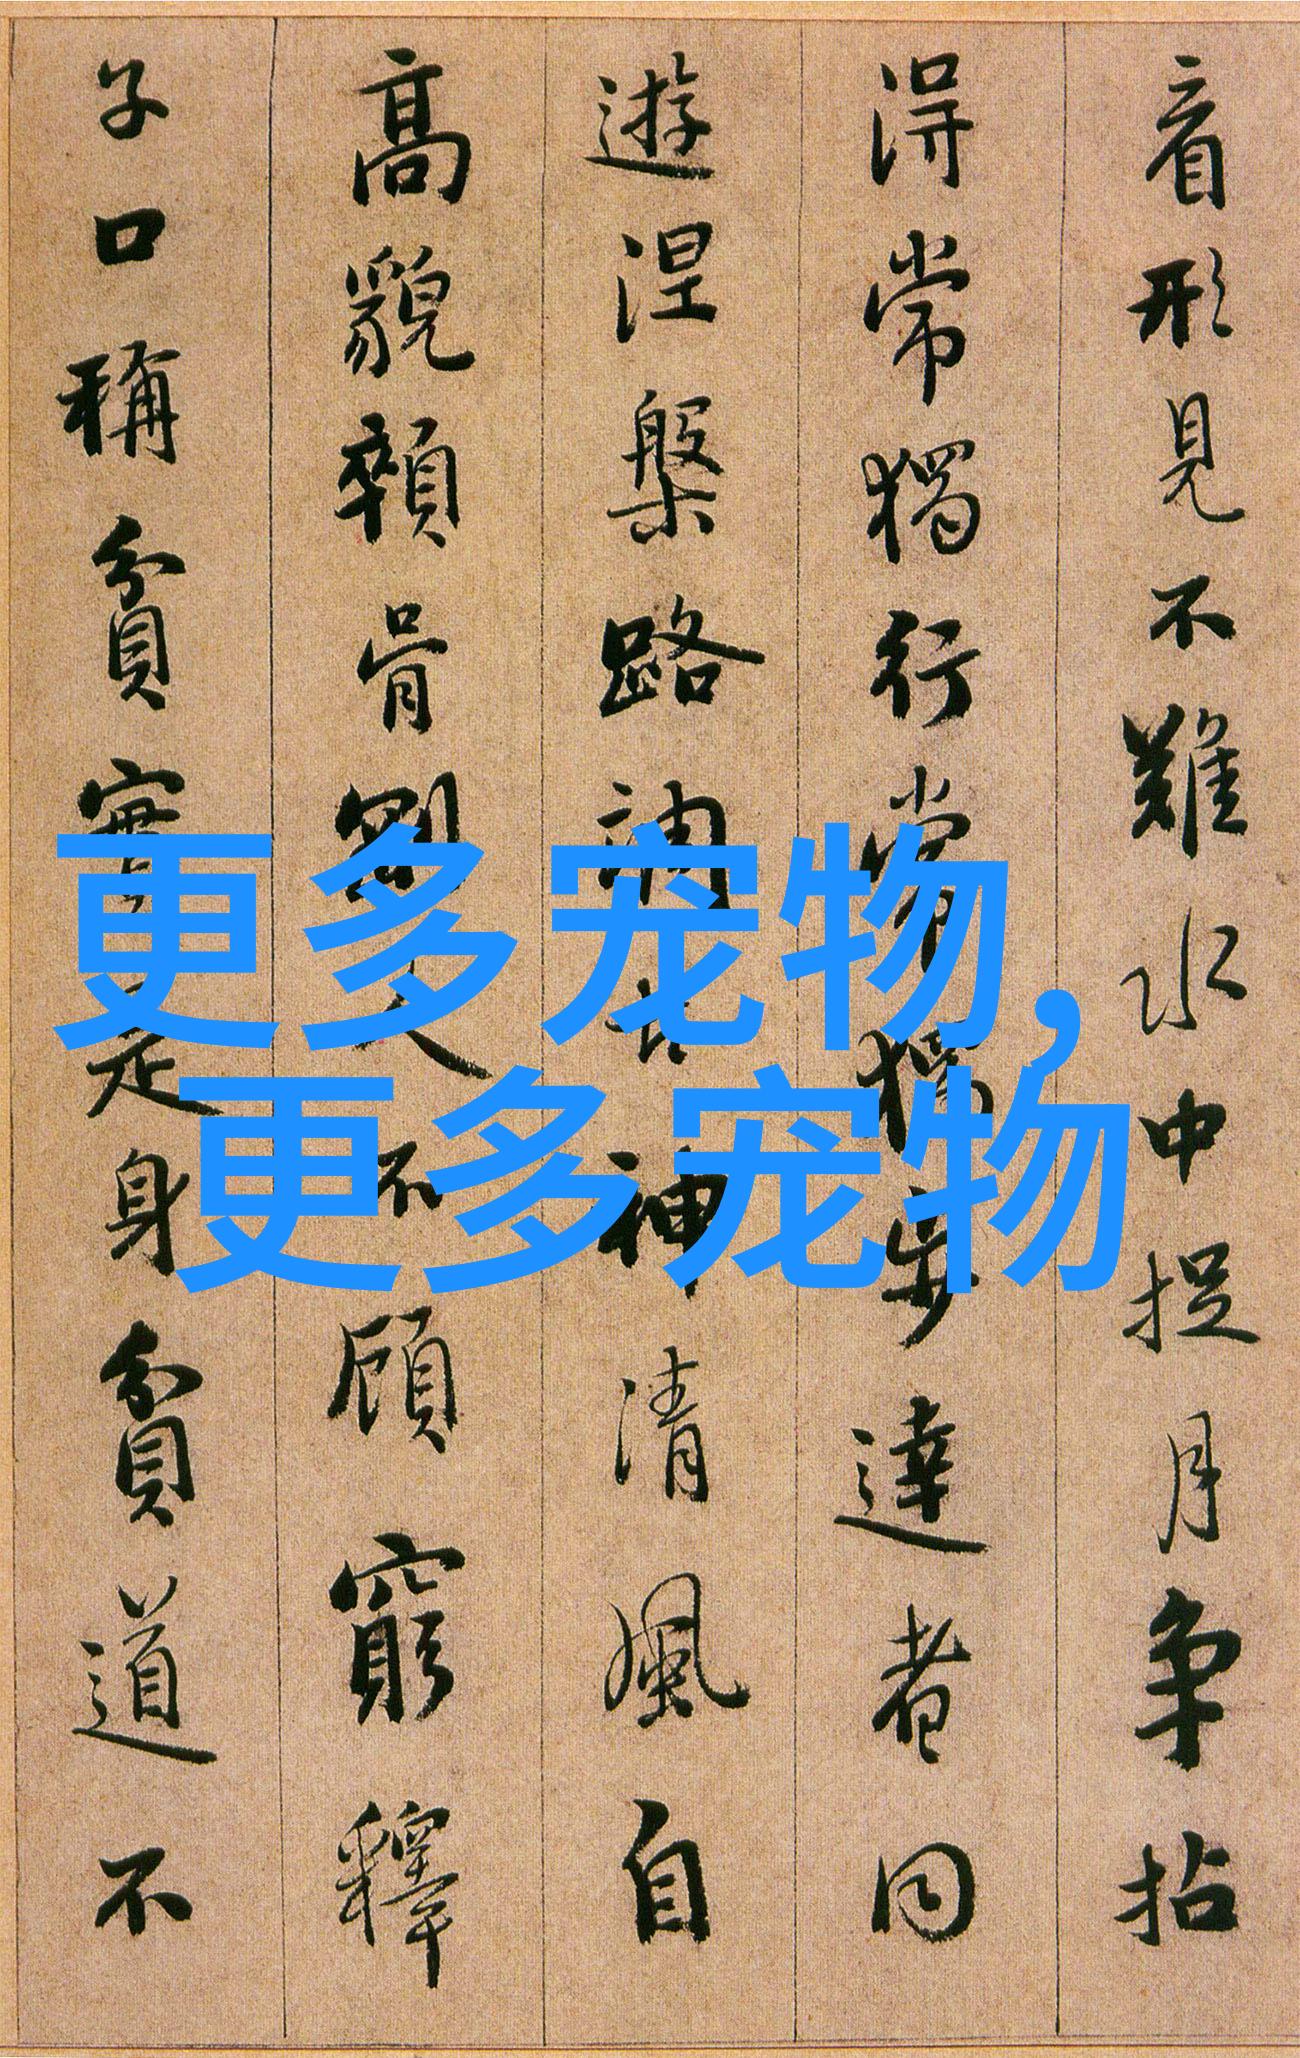 看形見不難水中捉月爭拈
得常獨行常獨步達者同
遊涅槃路調古神清風自
高貌顇骨剛人不顧窮釋
子口稱貧實是身貧道不
更多宠物,
更多宠物